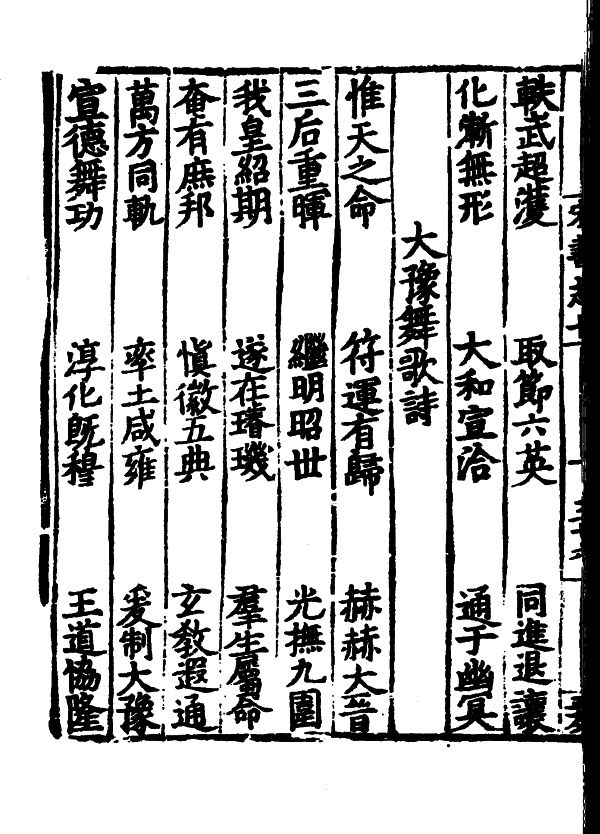 軼武超濩 取節六英 同進退讓
化漸無形 大和宣洽 通于幽冥
大豫舞歌詩
惟天之命 符運有歸 赫赫大晉
三后重暉 繼明昭世 光撫九圍
我皇紹期 遂在璿璣 羣生屬命
奄有庶邦 慎徽五典 玄教遐通
萬方同軌 率土咸雍 爰制大豫
宣德舞功 淳化旣穆 王道協隆